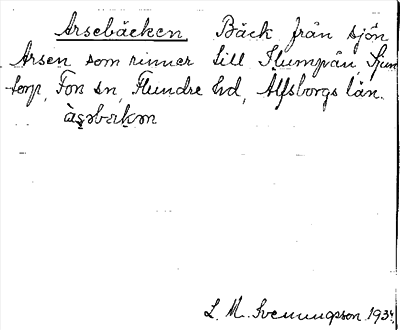 Arsebäcken Bäck från sjön
Arsen som rinner till Slumpån,
torp, Fors sn, Flundre hd, Älfsborgs län.
L. M. Svenungsson 1934